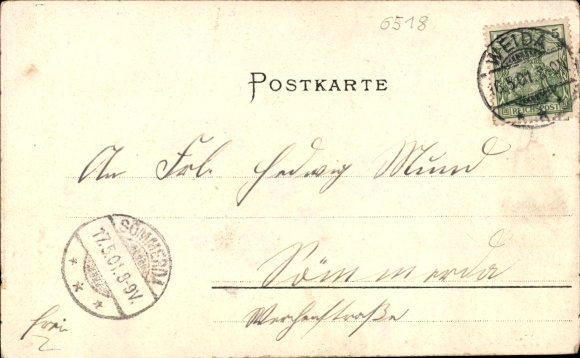 6518
5
REICHSPOST
WEIDA
.5.01.
POSTKARTE
An Frl. Hedwig Mund
SÖMMERDA
17.5.01.8-9V.
Sömmerda